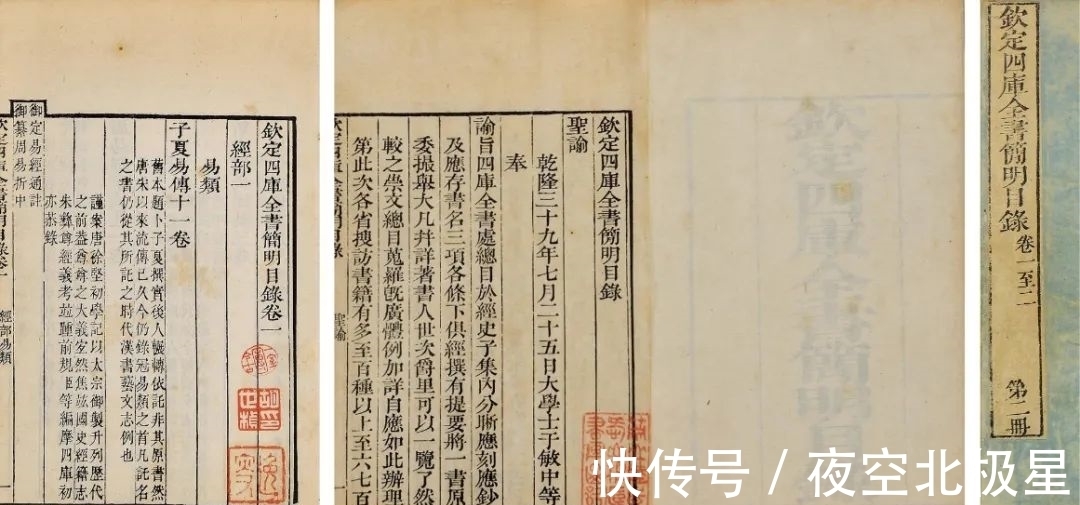 欽定四庫全書簡明目錄 卷一至二
第一册
欽定四庫全書簡明目錄
聖諭
乾隆三十九年七月二十五日大學士于敏中等
奉
諭旨四庫全書處總目於經史子集內分晰應刻應鈔
及應存書名三項各條下俱經撰有提要將一書原
委撮舉大凡并詳著書人世次爵里可以一覽了然
較之崇文總目蒐羅旣廣體例加詳自應如此辦理
第此次各省搜訪書籍有多至百種以上至六七百
聖諭
欽定四庫全書簡明目錄卷一
經部一
易類
子夏易傳十一卷
舊本題卜子夏撰實後人輾轉依託非其原書然
唐宋以來流傳已久今仍錄冠易類之首凡託名
之書仍從其所託之時代漢書藝文志例也
謹案唐徐堅初學記以太宗御製升列歷代
之前蓋尊尊之大義宜然焦竑國史經籍志
朱彝尊經義考竝踵前規臣等編摩四庫初
亦恭錄
御定易經通註
御纂周易折中
經部易類
快传号 / 夜空北极星